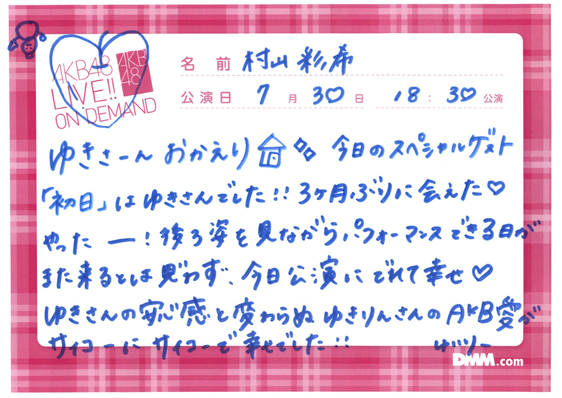 AKB48
LIVE!!
ON DEMAND
AKB
48
名 前 村山 彩希
公演日 7 月 30 日 18 : 30 公演
ゆきさーん おかえり 今日のスペシャルゲスト
「初日」は ゆきさんでした!! 3ヶ月ぶりに 会えた♡
やったー! 後ろ姿を見ながらパフォーマンスできる日が
また来るとは思わず、今日公演にでれて幸せ♡
ゆきさんの安心感と変わらぬ ゆきりんさんの AKB愛が
サイコーに サイコーで 幸せでした!! ゆいりー
DMM.com